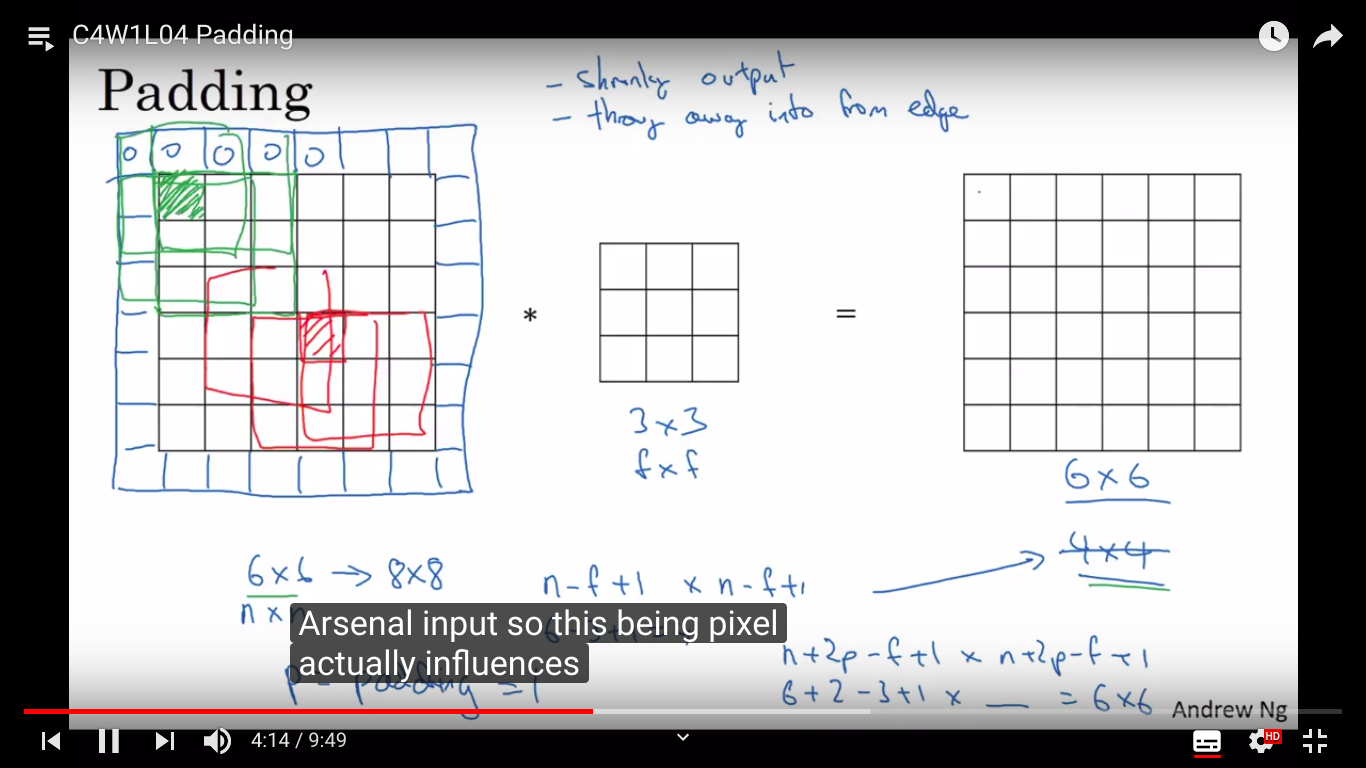 C4W1L04 Padding
Padding
- shrinky output
- throw away info from edge
0 0 0 0 0
*
=
3×3
f×f
6×6
4×4
6×6 → 8×8
n - f + 1 × n - f + 1
n × n
Arsenal input so this being pixel
actually influences
n+2p-f+1 × n+2p-f+1
p = padding = 1
6+2-3+1 × __ = 6×6
Andrew Ng
4:14 / 9:49
HD